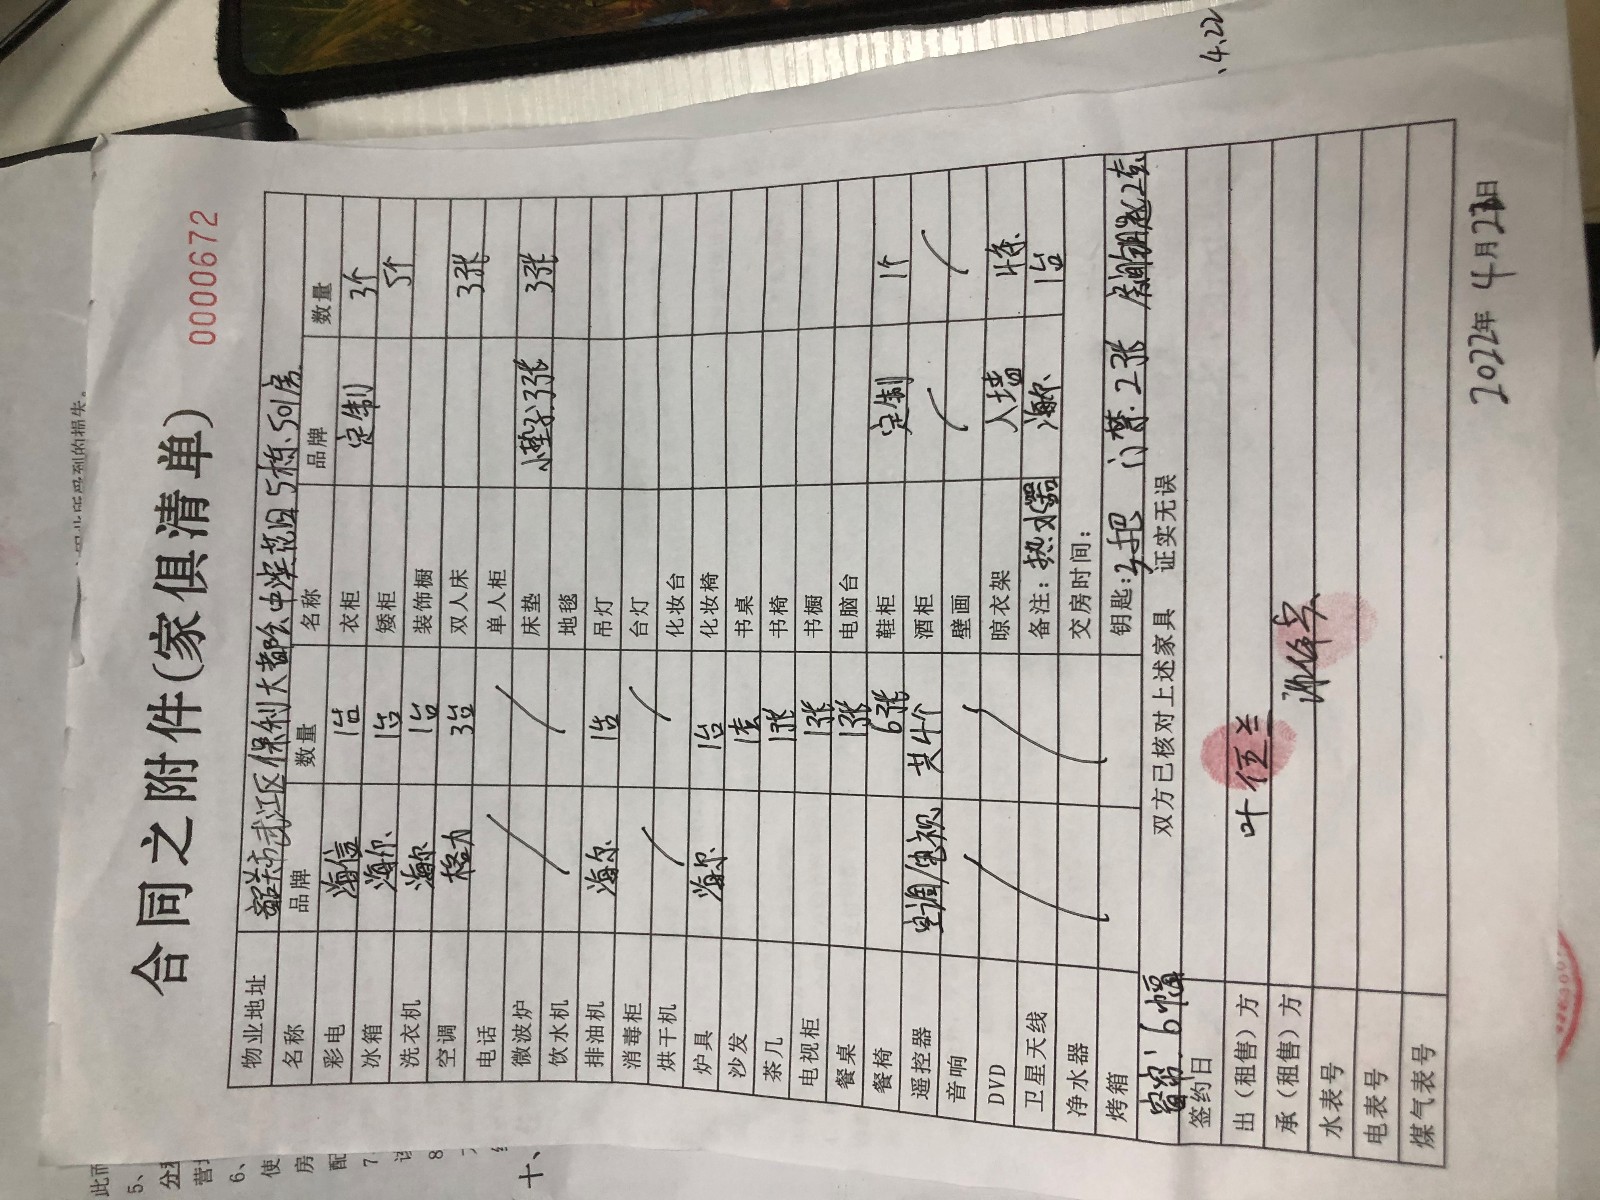 0000672
合同之附件(家俱清单)
物业地址 韶关市武江区保利大都会中滨花园5栋501房
名称 品牌 数量 名称 品牌 数量
彩电 海信 1台 衣柜 定制 3个
冰箱 海尔 1台 矮柜 5个
洗衣机 海尔 1台 装饰橱
空调 格力 3台 双人床 3张
电话 单人柜
微波炉 床垫 小垫子3张 3张
饮水机 地毯
排油机 海尔 1台 吊灯
消毒柜 台灯
烘干机 化妆台
炉具 海尔 1台 化妆椅
沙发 1套 书桌
茶几 1张 书椅
电视柜 1张 书橱
餐桌 1张 电脑台
餐椅 6张 鞋柜 定制 1个
遥控器 空调/电视 共4个 酒柜
音响 壁画
DVD 晾衣架 入墙
卫星天线 备注:热水器 海尔 1台
净水器 交房时间:
烤箱 钥匙: 把 门禁2张 房间钥匙2套
窗帘:6幅 双方已核对上述家具 证实无误
签约日
出(租售)方 叶伍兰
承(租售)方
水表号
电表号
煤气表号
2022年4月23日
.4.22
此而
5、
分租
营
6、
使
房
配
7
8
十、
所受到的损失。